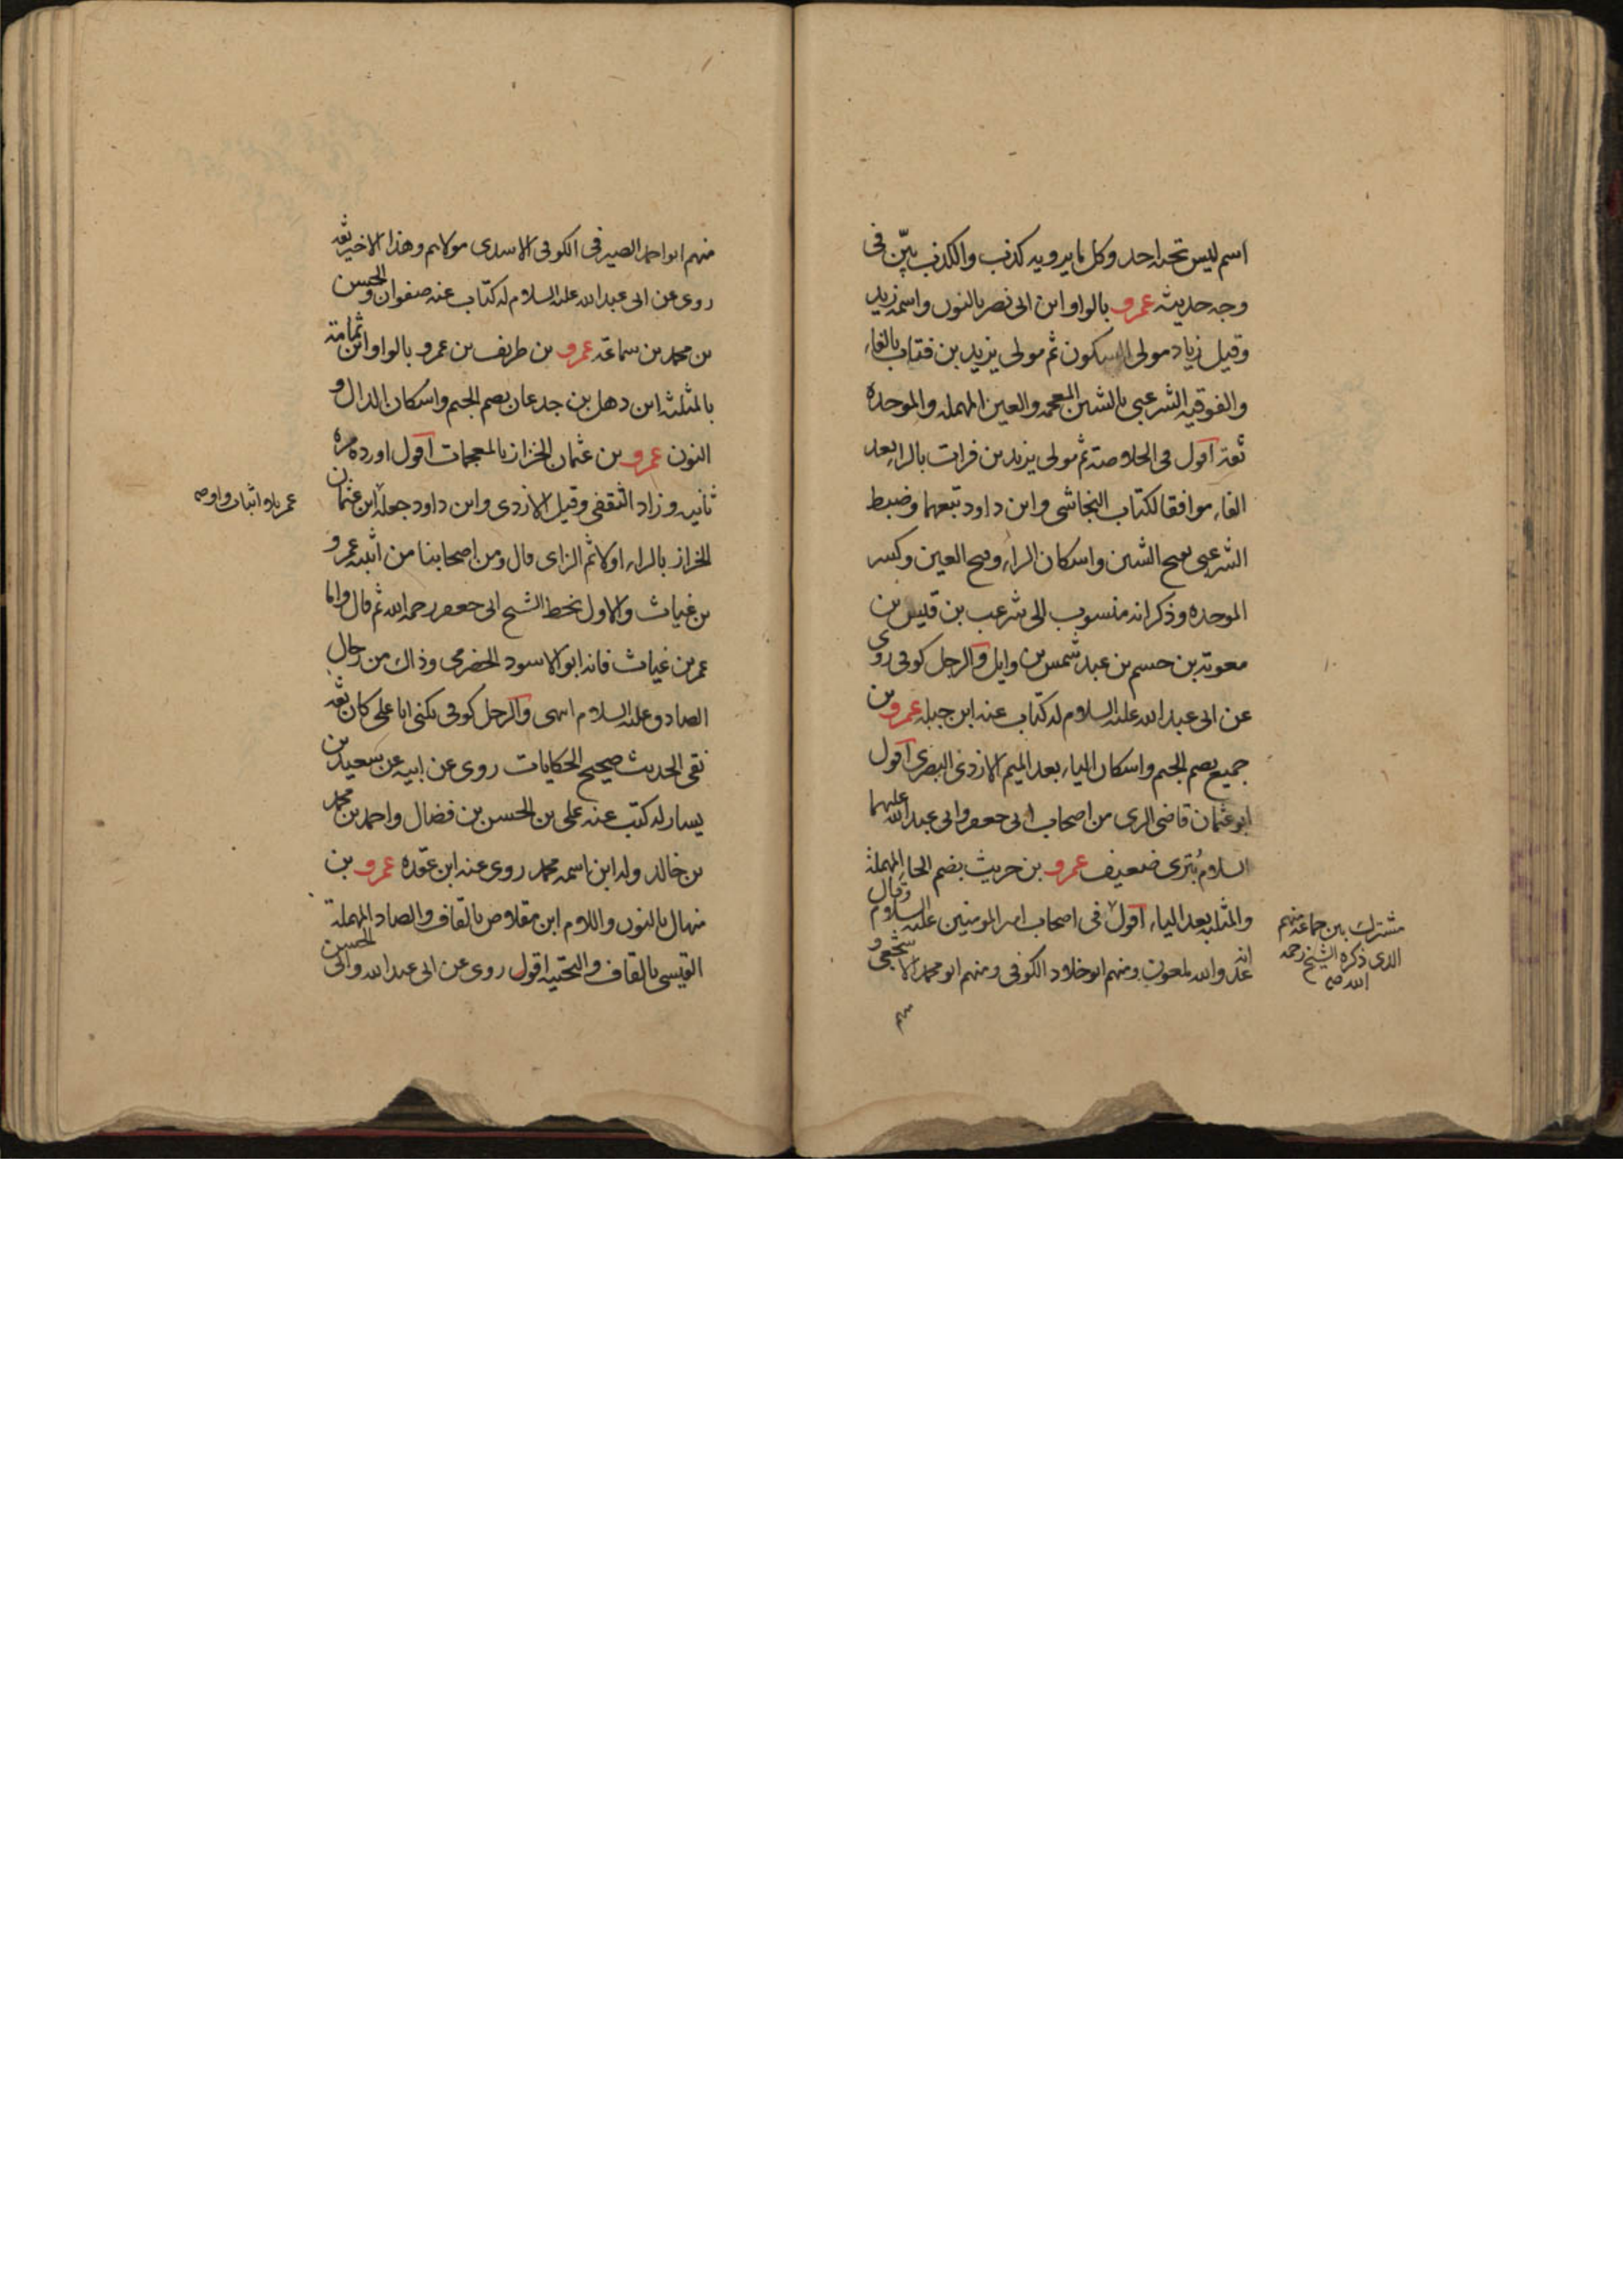 اسم ليس تحته احد وكل ما يرويه كذب والكذب بيّن في
وجه حديثه عمرو بالواو ابن ابى نصر بالنون واسمه زيد
وقيل زياد مولى السكون ثم مولى يزيد بن فتات بالفاء
والفوقيه الشرعبى بالشين المعجمه والعين المهمله والموحده
ثقة اقول فى الخلاصة ثم مولى يزيد بن فرات بالرا بعد
الفاء موافقا لكتاب النجاشى وابن داود تبعهما وضبط
الشرعبى بفتح الشين واسكان الراء وفتح العين وكسر
الموحده وذكر انه منسوب الى شرعب بن قيس بن
معوية بن جسم بن عبد شمس بن وايل والرجل كوفى روى
عن ابى عبد الله عليه السلام له كتاب عنه ابن جبله عمرو بن
جميع بضم الجيم واسكان الياء بعد الميم الازدى البصرى اقول
ابو عثمان قاضى الرى من اصحاب ابى جعفر وابى عبد الله عليهما
السلام بُترى ضعيف عمرو بن حريث بضم الحاء المهملة
والمثلثه بعد الياء اقول فى اصحاب امير المومنين عليه السلام وقال
انه عدو الله ملعون ومنهم ابو خلاد الكوفى ومنهم ابو محمد الاشجعى و
مشترك بين جماعة منهم
الذى ذكره الشيخ رحمه
الله صح
منهم
منهم ابو احمد الصيرفى الكوفى الاسدى مولاهم وهذا الاخير ثقه
روى عن ابى عبد الله عليه السلام له كتاب عنه صفوان والحسن
بن محمد بن سماعة عمرو بن طريف بن عمرو بالواو ابن ثمامة
بالمثلثه ابن دهل بن جدعان بضم الجيم واسكان الدال و
النون عمرو بن عثمان الخزاز بالمعجمات اقول اورده مره
ثانيه وزاد الثقفى وقيل الازدى وابن داود جعله ابن عثمان
الخراز بالراء اولا ثم الزاى قال ومن اصحابنا من اثبته عمرو
بن غياث والاول بخط الشيخ ابى جعفر رحمه الله ثم قال واما
عمر بن غياث فانه ابو الاسود الحضرمى وذاك من رجال
الصادق عليه السلام انتهى والرجل كوفى يكنى ابا على كان ثقه
نقى الحديث صحيح الحكايات روى عن ابيه عن سعيد بن
يسار له كتب عنه على بن الحسن بن فضال واحمد بن محمد
بن خالد وله ابن اسمه محمد روى عنه ابن عقده عمرو بن
منهال بالنون واللام ابن مقلاص بالقاف والصاد المهملة
القيسى بالقاف والتحتيه اقول روى عن ابى عبد الله وابى الحسن